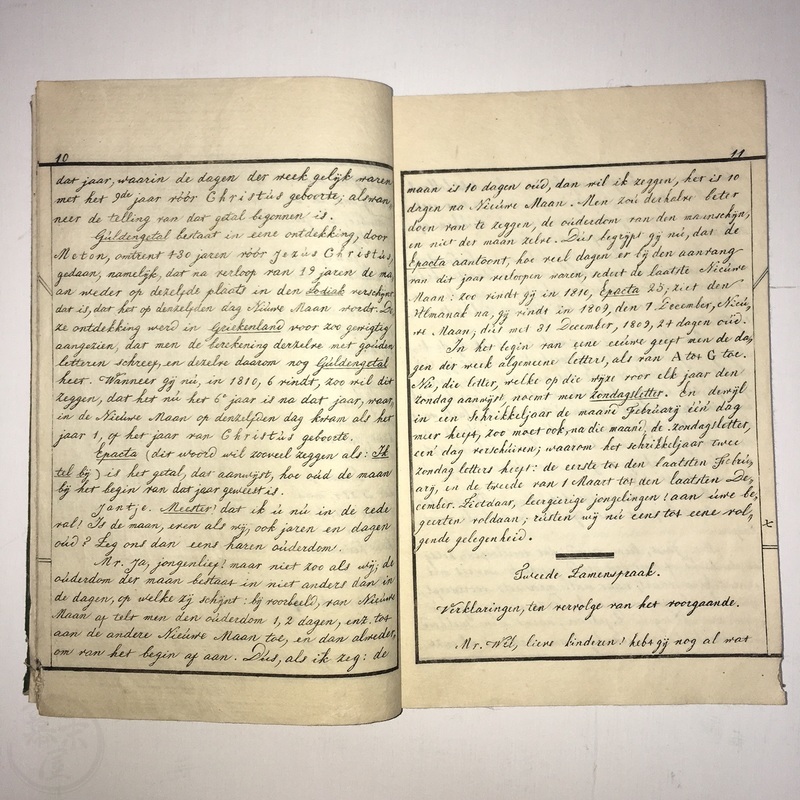 10
dat jaar, waarin de dagen der week gelijk waren
met het 9de jaar vóór Christus geboorte; alswan,
neer de telling van dat getal begonnen is.
Guldengetal bestaat in eene ontdekking, door
Meton, omtrent 430 jaren vóór Jezus Christus,
gedaan, namelijk, dat na verloop van 19 jaren de ma,
an weder op dezelfde plaats in den Zodiak verschijnt
dat is, dat het op denzelfden dag Nieuwe Maan wordt. De,
ze ontdekking werd in Griekenland voor zoo gewigtig
aangezien, dat men de berekening derzelve met gouden
letteren schreef, en dezelve daarom nog Guldengetal
heet. Wanneer gij nu, in 1810, 6 vindt, zoo wil dit
zeggen, dat het nu het 6e jaar is na dat jaar, waar,
in de Nieuwe Maan op denzelfden dag kwam als het
jaar 1, of het jaar van Christus geboorte.
Epacta (dit woord wil zooveel zeggen als: Ik
tel bij) is het getal, dat aanwijst, hoe oud de maan
bij het begin van dat jaar geweest is.
Jantje. Meester! dat ik u nu in de rede
val! Is de maan, even als wij, ook jaren en dagen
oud? Zeg ons dan eens haren ouderdom.
Mr. Ja, jongenlief! maar niet zoo als wij; de
ouderdom der maan bestaat in niet anders dan in
de dagen, op welke zij schijnt: bij voorbeeld, van Nieuwe
Maan af telt men den ouderdom 1, 2 dagen, enz. tot
aan de andere Nieuwe Maan toe, en dan alweder,
om van het begin af aan. Dus, als ik zeg: de
11
maan is 10 dagen oud, dan wil ik zeggen, het is 10
dagen na Nieuwe Maan. Men zou derhalve beter
doen van te zeggen, de ouderdom van den maanschijn,
en niet der maan zelve. Dus begrijpt gij nu, dat de
Epacta aantoont, hoe veel dagen er bij den aanvang
van dit jaar verloopen waren, sedert de laatste Nieuwe
Maan: zoo vindt gij in 1810, Epacta 25; ziet den
Almanak na, gij vindt in 1809, den 7 December, Nieu,
we Maan; dus met 31 December, 1809, 24 dagen oud.
In het begin van eene eeuwe geeft men de da,
gen der week algemeene letters, als van A tot G toe.
Nu, die letter, welke op die wijze voor elk jaar den
zondag aanwijst, noemt men zondagsletter. En dewijl
in een Schrikkeljaar de maand Februarij één dag
meer heeft, zoo moet ook, na die maand, de zondagsletter,
één dag verschuiven; waarom het schrikkeljaar twee
zondag letters heeft: de eerste tot den laatsten Febru,
arij, en de tweede van 1 Maart tot den laatsten De,
cember. Zietdaar, leergierige jongelingen! aan uwe be,
geerten voldaan; rusten wij nu eens tot eene vol,
gende gelegenheid.
x
Tweede Zamenspraak.
Verklaringen, ten vervolge van het voorgaande.
Mr. Wel, lieve kinderen! hebt gij nog al wat